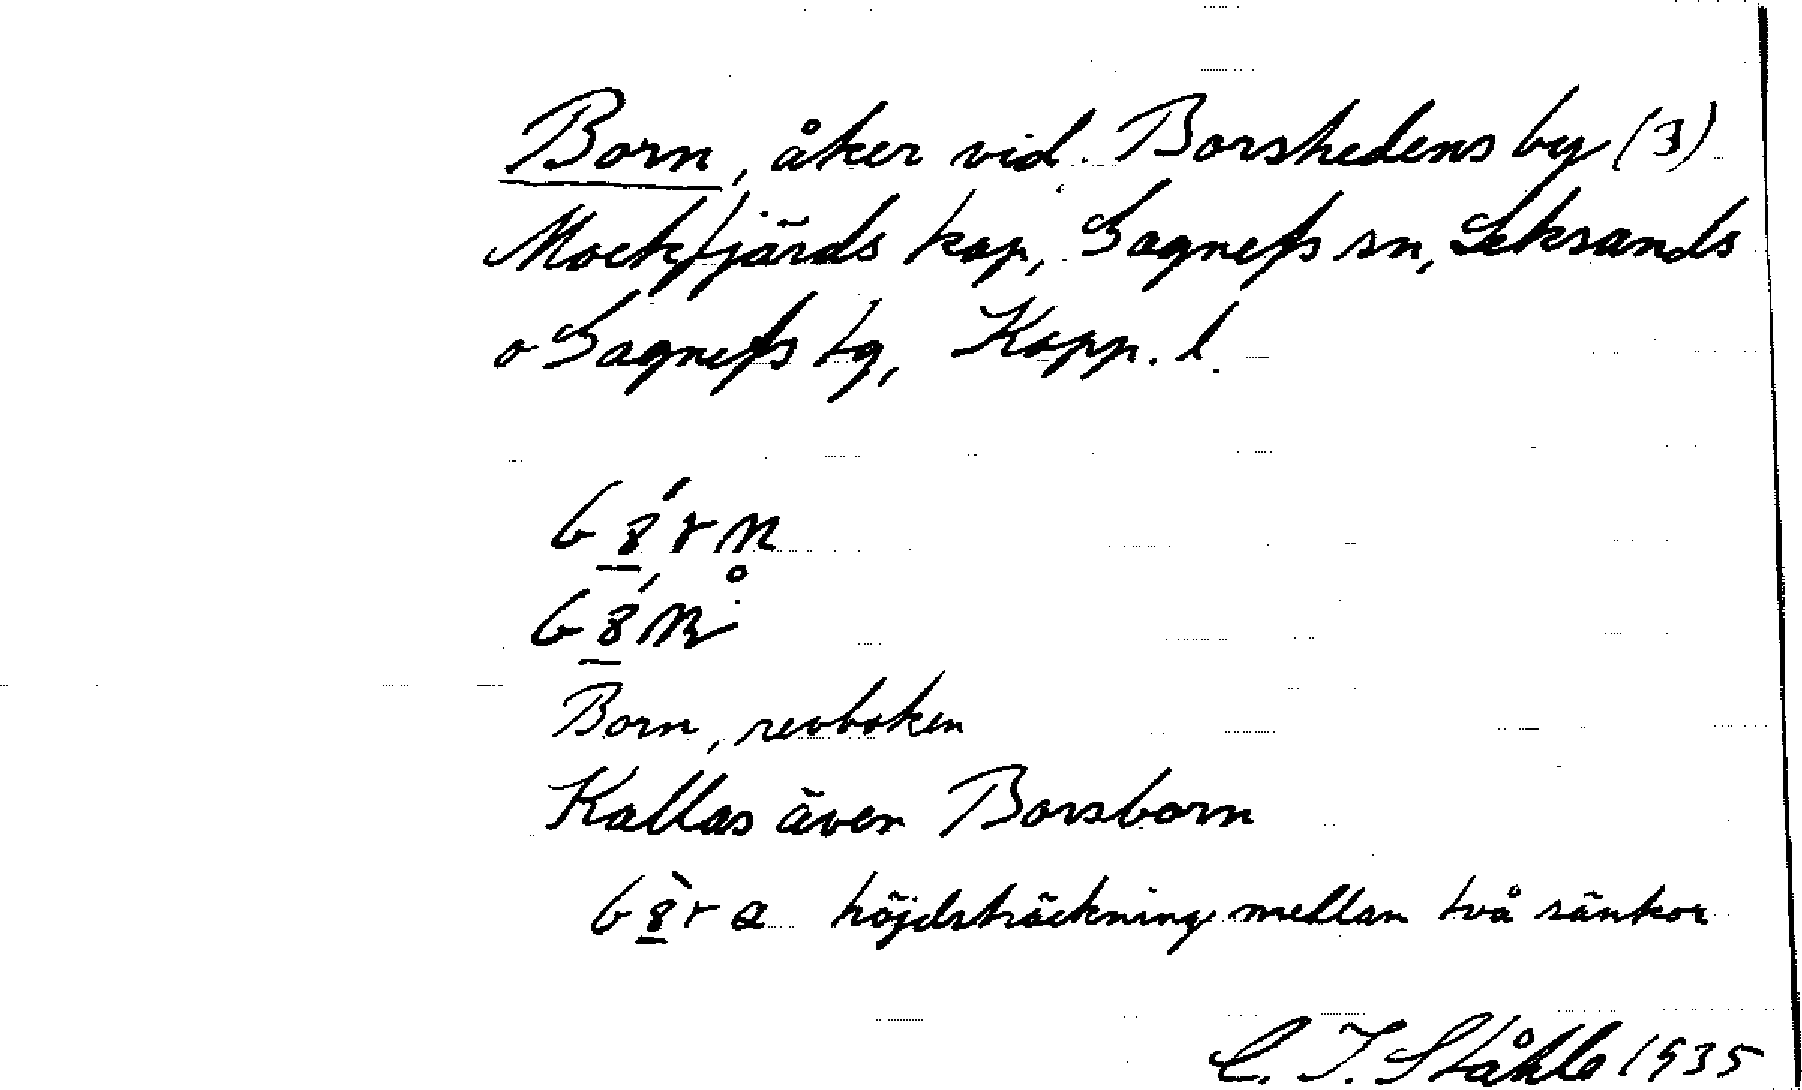 Born, åker vid Borshedens by (3)
Mockfjärds kap, Gagnefs sn, Leksands
o Gagnefs tg, Kopp. l.
Born, revboken
Kallas även Borsborn
höjdsträckning mellan två sänkor
C. I. Ståhle 1935